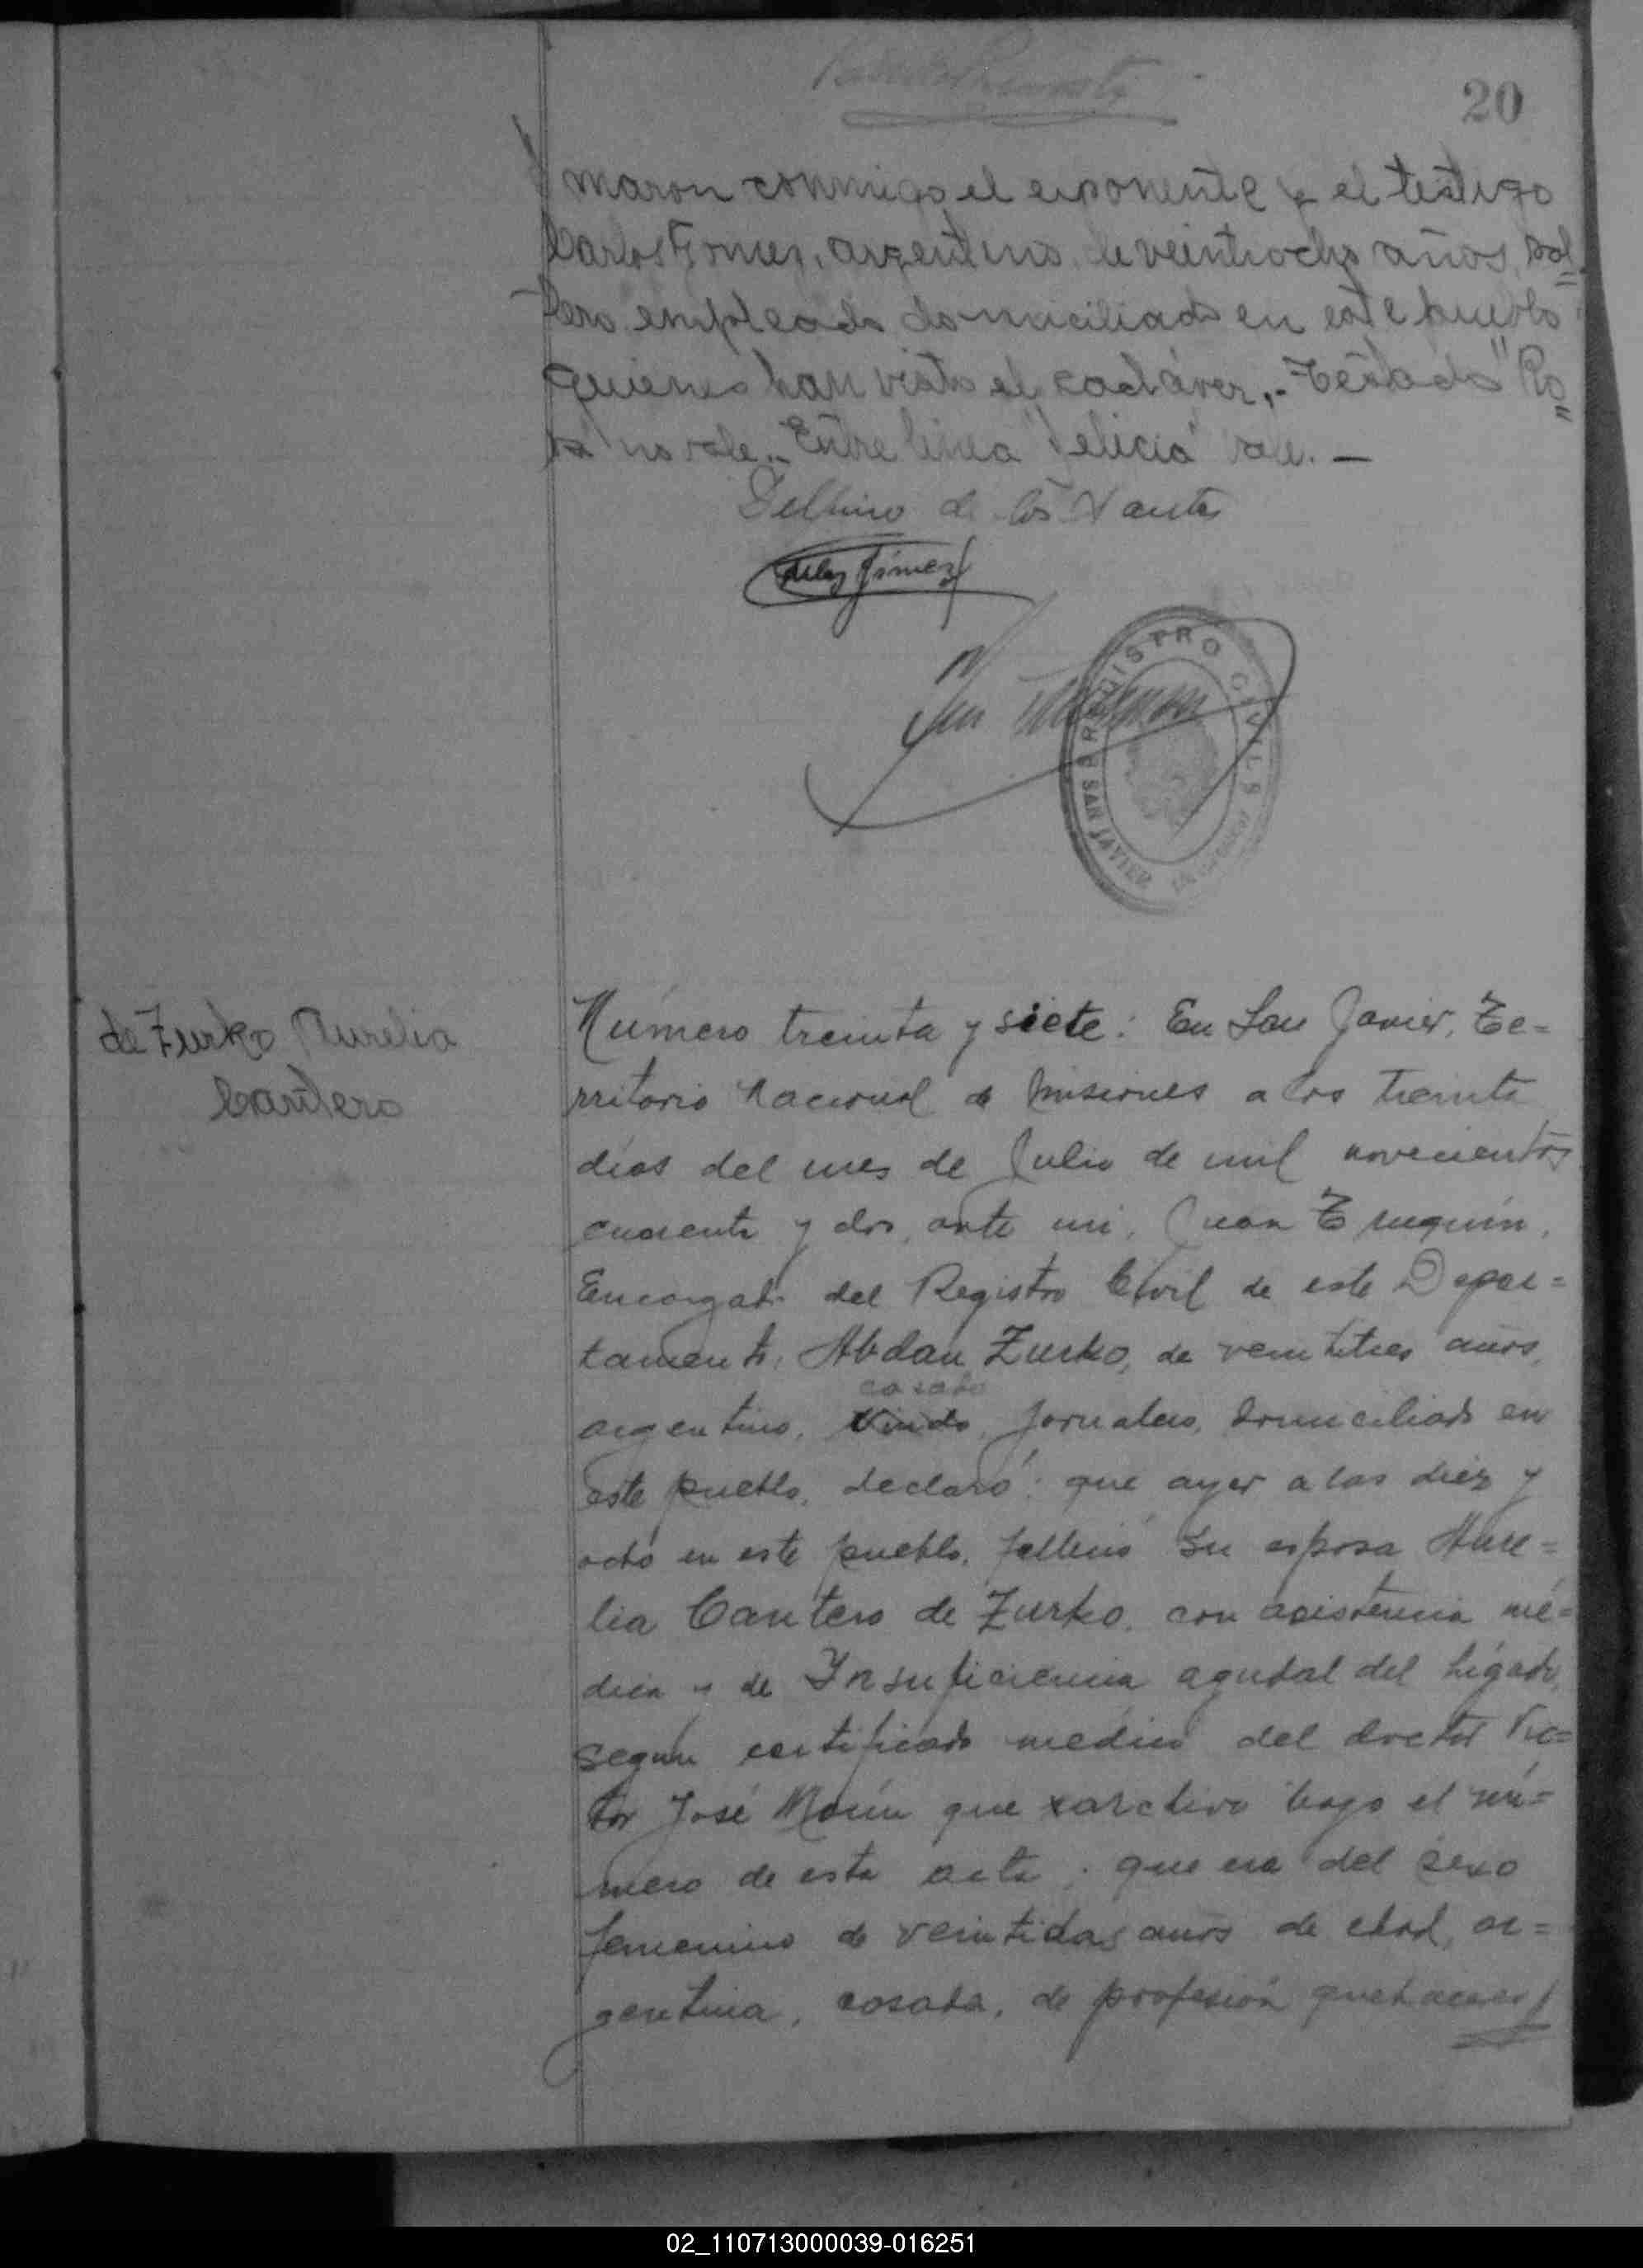 20
maron conmigo el exponente y el testigo
Carlos Gomez, argentino, de veintiocho años, sol=
tero empleado domiciliado en este pueblo
quienes han visto el cadáver.- Testado "Ro=
sa" no vale.- Entre linea "Felicia" vale. —
Delfino de los Santos
Gómez
REGISTRO CIVIL
SAN JAVIER
de Zurko Aurelia
Cantero
Número treinta y siete: En San Javier, Te=
rritorio Nacional de Misiones a los treinta
días del mes de Julio de mil novecientos
cuarenta y dos, ante mi, Juan
Encargado del Registro Civil de este Depar=
tamento, Abdan Zurko, de veintitres años,
casado
argentino, viudo, jornalero, domiciliado en
este pueblo, declaró: que ayer a las diez y
ocho en este pueblo, falleció su esposa Aure=
lia Cantero de Zurko, con asistencia mé=
dica y de Insuficiencia agudal del hígado,
segun certificado medico del doctor Vic=
tor José Marín que archivo bajo el nú=
mero de esta acta; que era del sexo
femenino de veintidos años de edad, ar=
gentina, casada, de profesión quehaceres
02_110713000039-016251